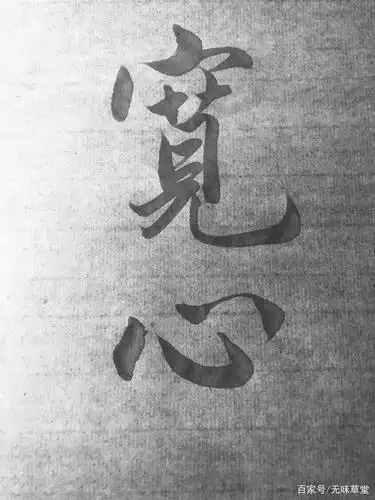 寬心
百家号/无味草堂